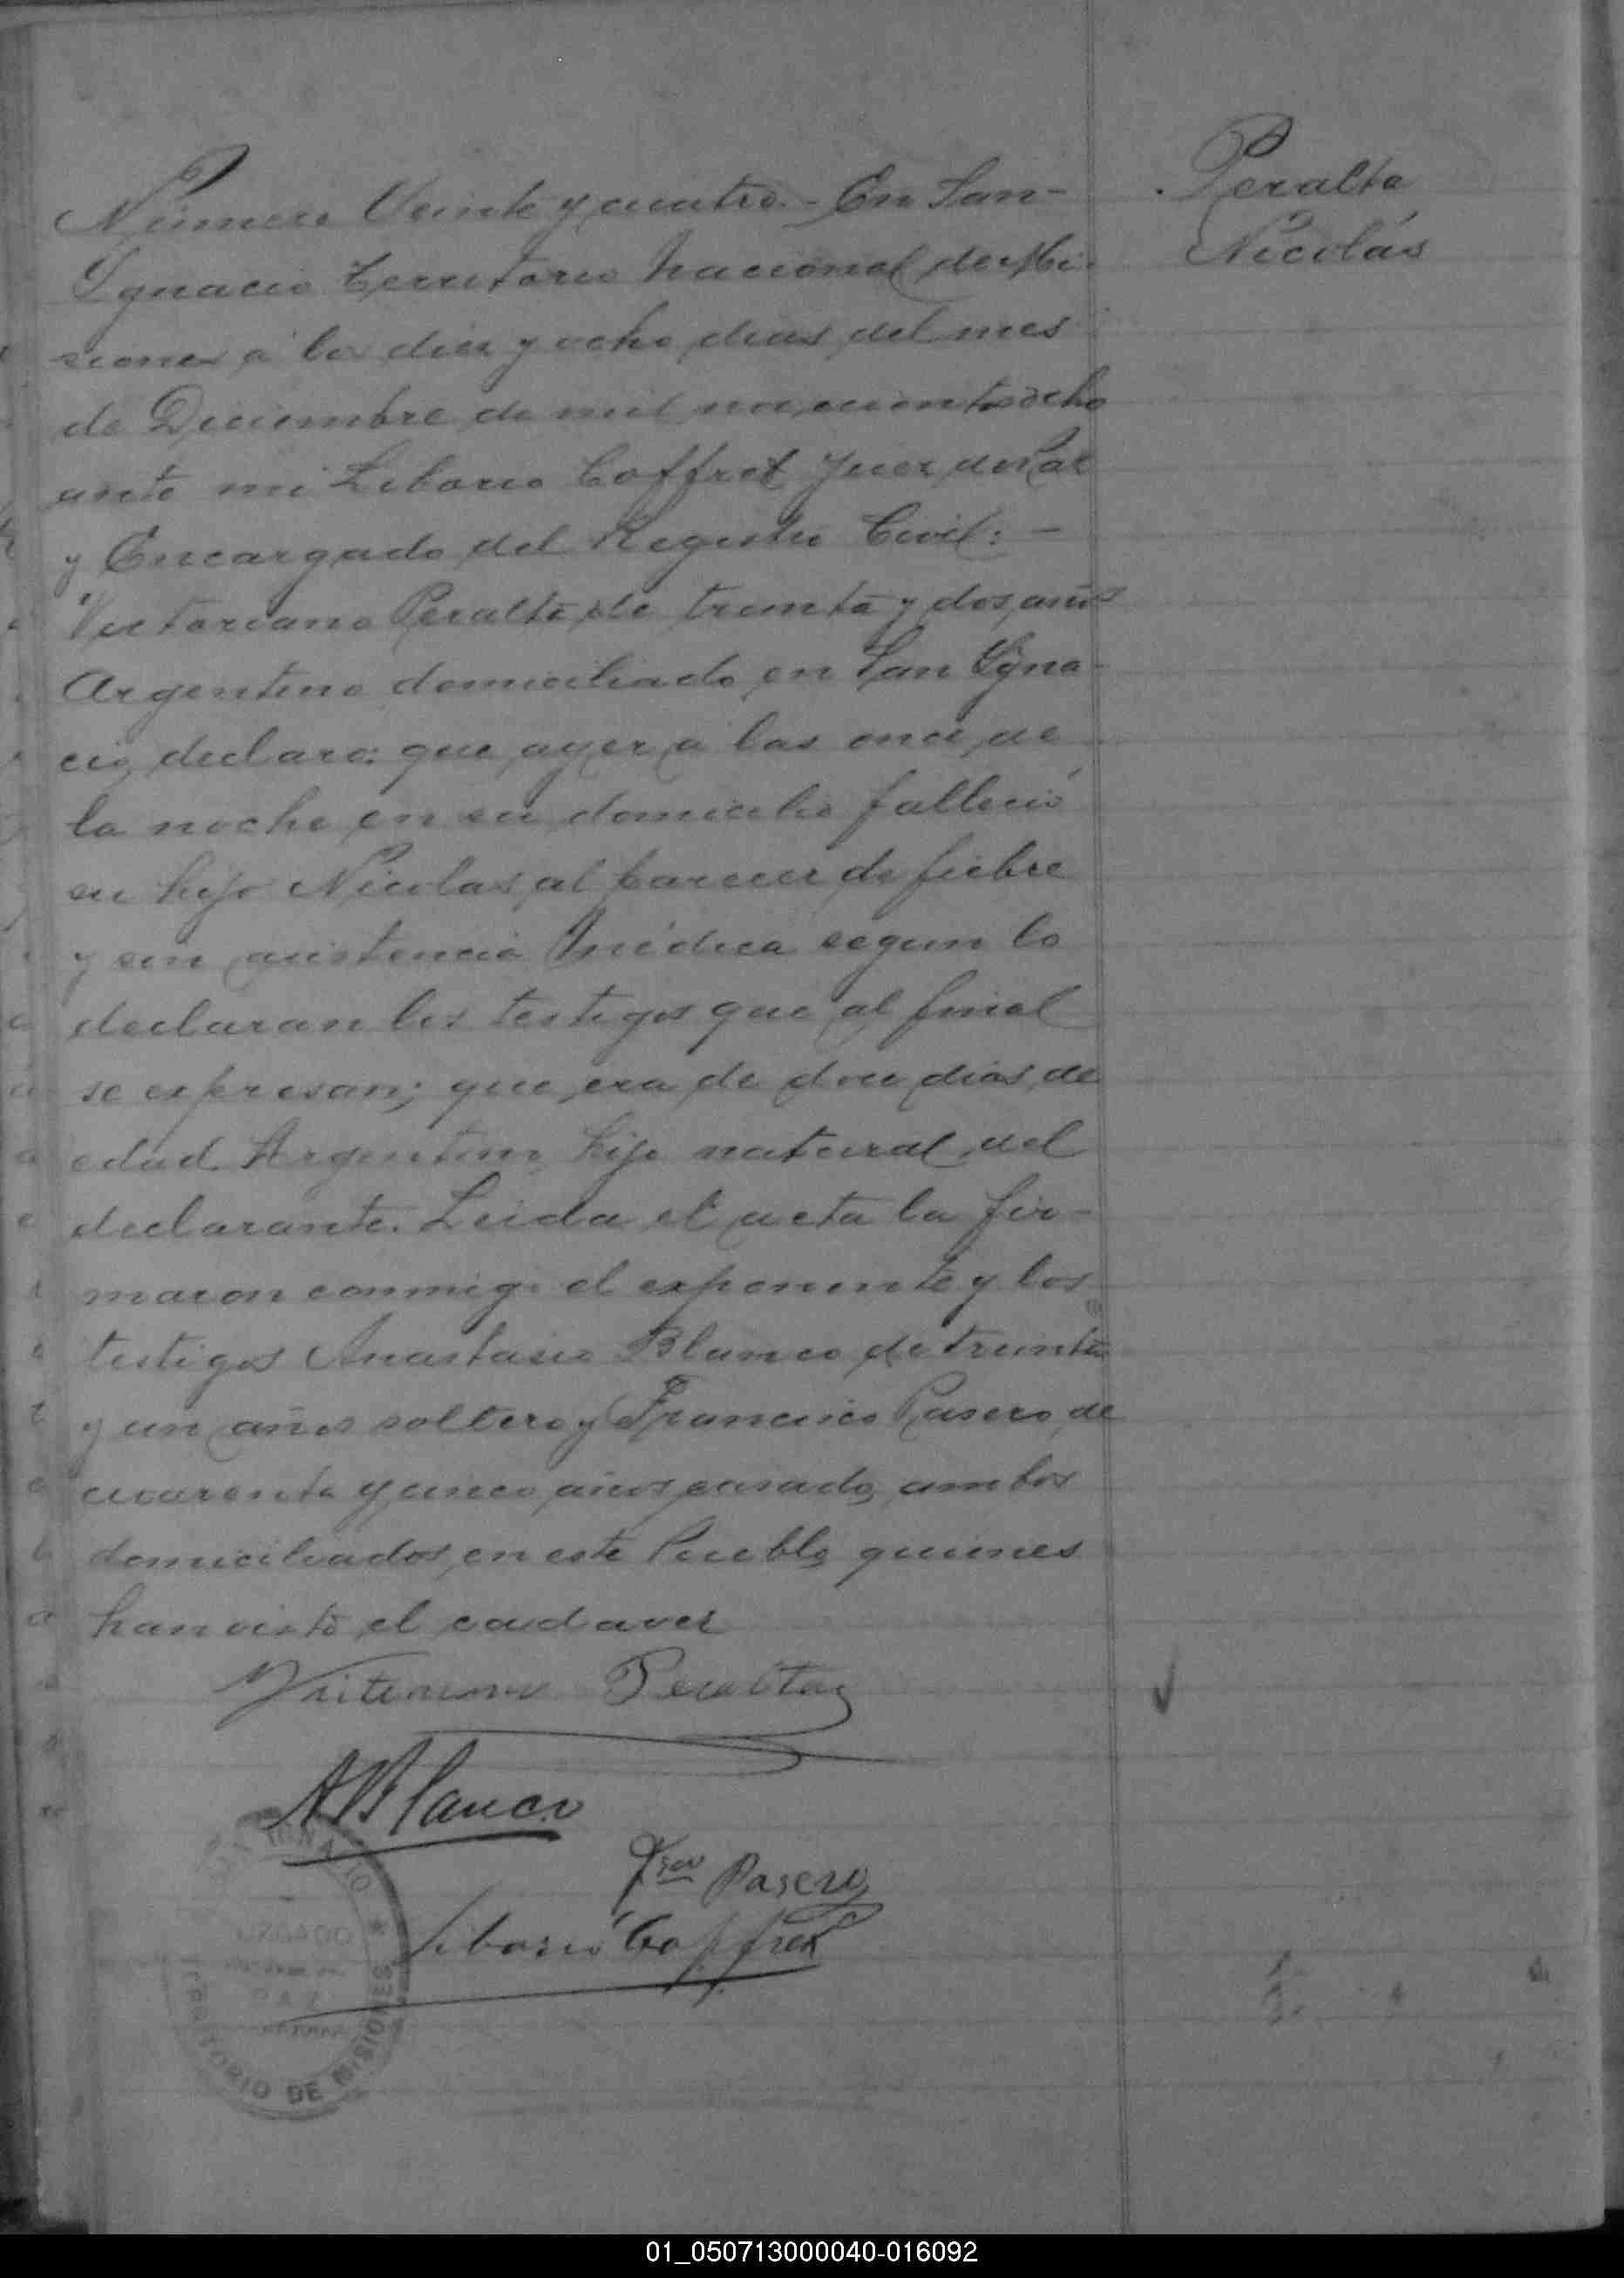 Peralta
Nicolás
Número Veinte y cuatro.- En San-
Ygnacio Territorio Nacional de Mi-
siones á los diez y ocho dias del mes
de Diciembre de mil novecientos ocho
ante mi Liborio Coffret Juez de Paz
y Encargado del Registro Civil: -
Victoriano Peralta de treinta y dos años
Argentino domiciliado en San Ygna-
cio, declaro: que ayer a las once de
la noche en su domicilio falleció
su hijo Nicolas, al parecer de fiebre
y sin asistencia Médica segun lo
declaran los testigos que al final
se expresan; que era de doce dias de
edad Argentino hijo natural del
declarante. Leida el acta la fir-
maron conmigo el exponente y los
testigos Anastasio Blanco de treinta
y un años soltero y Francisco Pasero, de
cuarenta y cinco años casado, ambos
domiciliados en este Pueblo, quienes
han visto el cadaver
Peralta
ABlanco
Fco Pasero
Liborio Coffret
IGNACIO
JUZGADO
PAZ
TERRITORIO DE MISIONES
01_050713000040-016092